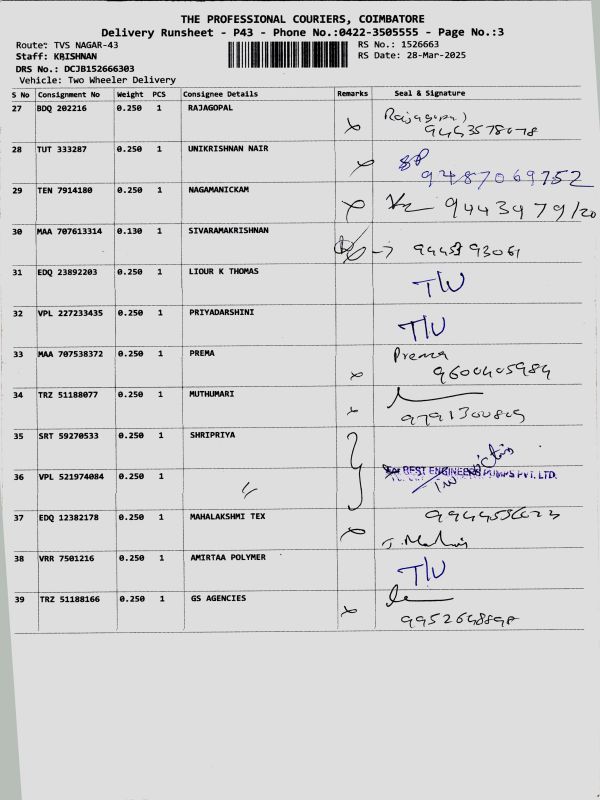 THE PROFESSIONAL COURIERS, COIMBATORE
Delivery Runsheet - P43 - Phone No.:0422-3505555 - Page No.:3
Route: TVS NAGAR-43 RS No.: 1526663
Staff: KRISHNAN RS Date: 28-Mar-2025
DRS No.: DCJB152666303
Vehicle: Two Wheeler Delivery
S No Consignment No Weight PCS Consignee Details Remarks Seal & Signature
27 BDQ 202216 0.250 1 RAJAGOPAL Rajagopal
28 TUT 333287 0.250 1 UNIKRISHNAN NAIR
9487069752
29 TEN 7914180 0.250 1 NAGAMANICKAM
9443479120
30 MAA 707613314 0.130 1 SIVARAMAKRISHNAN
31 EDQ 23892203 0.250 1 LIOUR K THOMAS
T/U
32 VPL 227233435 0.250 1 PRIYADARSHINI
T/U
33 MAA 707538372 0.250 1 PREMA Prema
9600405984
34 TRZ 51188077 0.250 1 MUTHUMARI
35 SRT 59270533 0.250 1 SHRIPRIYA
36 VPL 521974084 0.250 1 〃 BEST ENGINEERS PUMPS PVT. LTD.
37 EDQ 12382178 0.250 1 MAHALAKSHMI TEX
38 VRR 7501216 0.250 1 AMIRTAA POLYMER
T/U
39 TRZ 51188166 0.250 1 GS AGENCIES